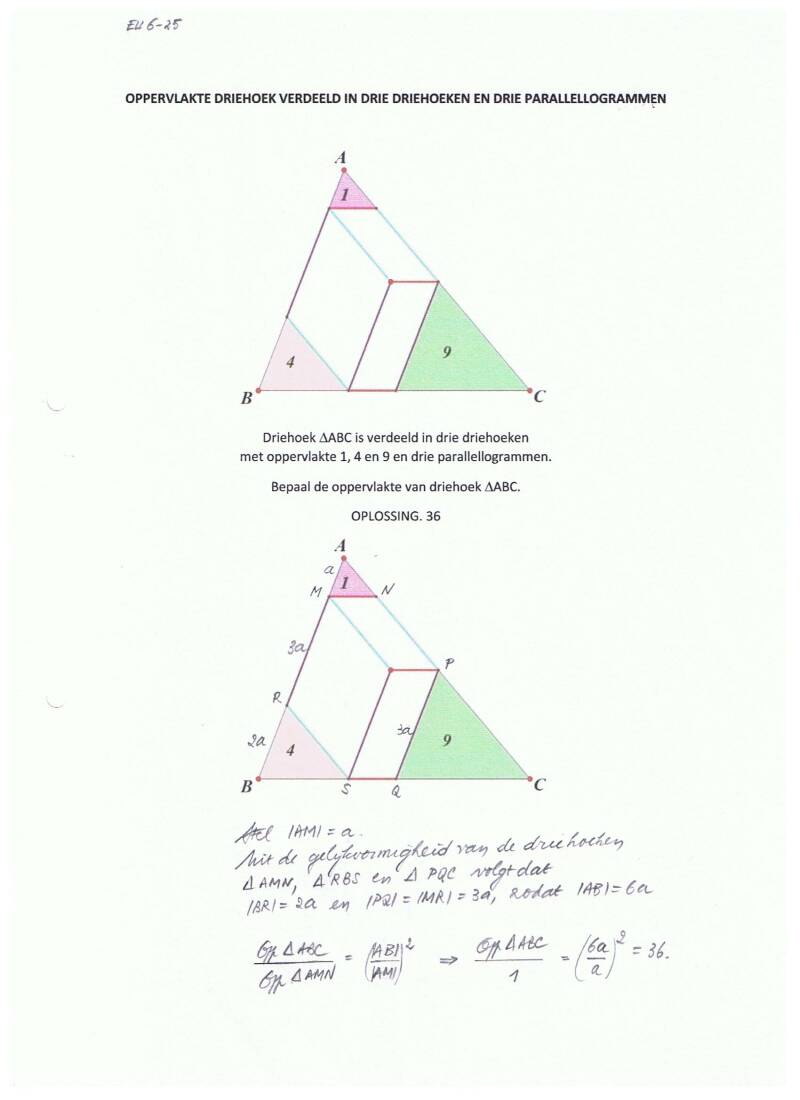 EU 6-25
OPPERVLAKTE DRIEHOEK VERDEELD IN DRIE DRIEHOEKEN EN DRIE PARALLELLOGRAMMEN
A
1
4
9
B
C
Driehoek ΔABC is verdeeld in drie driehoeken
met oppervlakte 1, 4 en 9 en drie parallellogrammen.
Bepaal de oppervlakte van driehoek ΔABC.
OPLOSSING. 36
A
a
1
M
N
3a
P
R
3a
2a
4
9
B
S
Q
C
Stel |AM| = a.
Uit de gelijkvormigheid van de driehoeken
Δ AMN, Δ RBS en Δ PQC volgt dat
|BR| = 2a en |PQ| = |MR| = 3a, zodat |AB| = 6a
Opp Δ ABC / Opp Δ AMN = (|AB| / |AM|)² ⇒ Opp Δ ABC / 1 = (6a / a)² = 36.